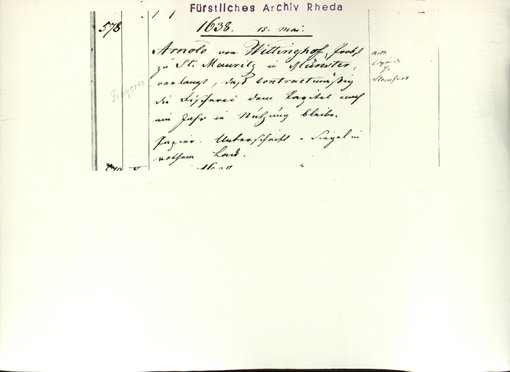 Fürstliches Archiv Rheda
578
1638. 15. Mai.
Arnold von Vittinghof, Probst
zu St. Mauritz in Münster,
verlangt, daß contractmäßig
die Fischerei dem Capitel noch
ein Jahr in Nutzung bleibe.
Papier. Unterschrift u. Siegel in
rothem Lack.